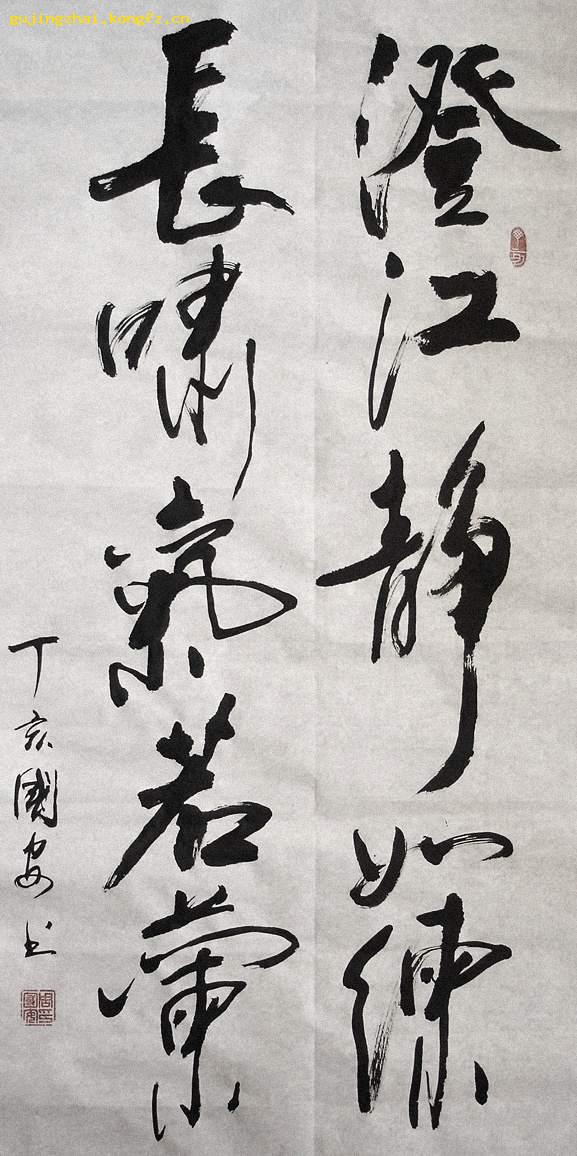 gujingzhai.kongfz.cn
澄江静如練
長嘯氣若蘭
丁亥國安书